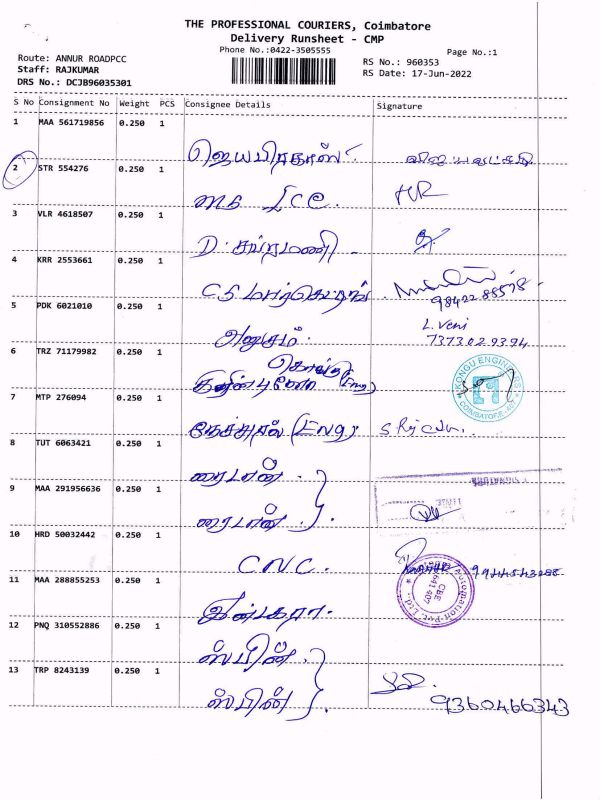 THE PROFESSIONAL COURIERS, Coimbatore
Delivery Runsheet - CMP
Phone No.:0422-3505555
Page No.:1
Route: ANNUR ROADPCC
Staff: RAJKUMAR
DRS No.: DCJB96035301
RS No.: 960353
RS Date: 17-Jun-2022
S No Consignment No Weight PCS Consignee Details Signature
1 MAA 561719856 0.250 1
ஜெயபிரகாஸ்
2 STR 554276 0.250 1
HR
3 VLR 4618507 0.250 1
D. சுப்ரமணி
4 KRR 2553661 0.250 1
CS
98422 88578
5 PDK 6021010 0.250 1
L. Veni
73730 29394
6 TRZ 71179982 0.250 1
KONGU ENGINEERS
COIMBATORE
7 MTP 276094 0.250 1
(Eng)
8 TUT 6063421 0.250 1
ரைடான்
9 MAA 291956636 0.250 1
ரைடான்
10 HRD 50032442 0.250 1
CNC.
11 MAA 288855253 0.250 1
Automation Pvt. Ltd.
CBE
641 407
12 PNQ 310552886 0.250 1
ஸ்பின்
13 TRP 8243139 0.250 1
ஸ்பின்
9360466343